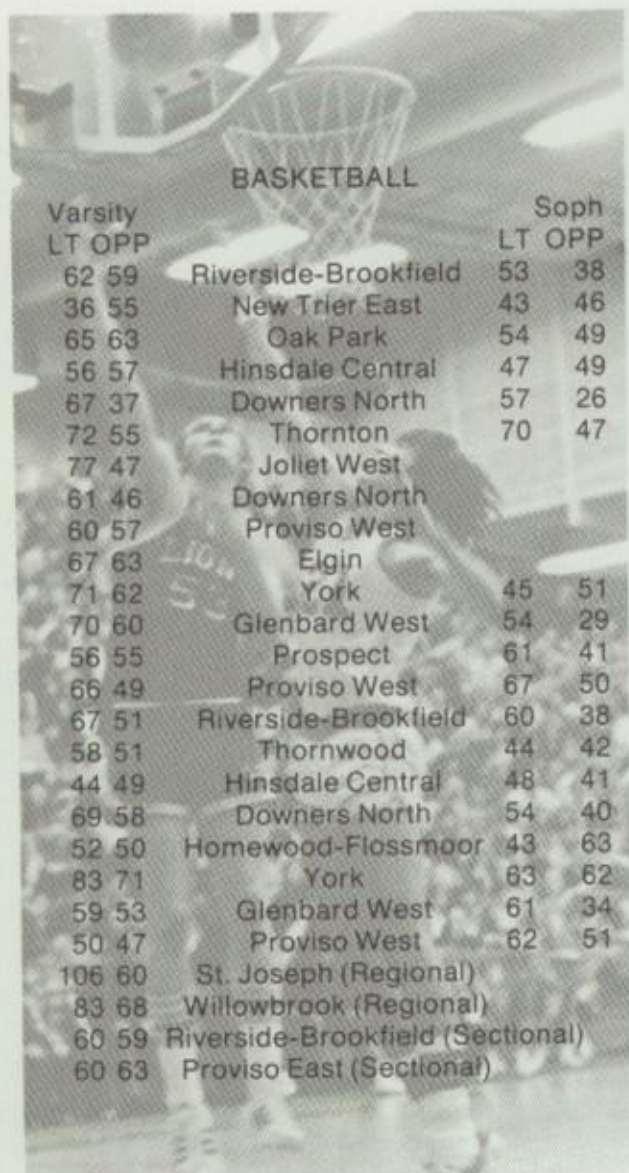 BASKETBALL
Varsity Soph
LT OPP LT OPP
62 59 Riverside-Brookfield 53 38
36 55 New Trier East 43 46
65 63 Oak Park 54 49
56 57 Hinsdale Central 47 49
67 37 Downers North 57 26
72 55 Thornton 70 47
77 47 Joliet West
61 46 Downers North
60 57 Proviso West
67 63 Elgin
71 62 York 45 51
70 60 Glenbard West 54 29
56 55 Prospect 61 41
66 49 Proviso West 67 50
67 51 Riverside-Brookfield 60 38
58 51 Thornwood 44 42
44 49 Hinsdale Central 48 41
69 58 Downers North 54 40
52 50 Homewood-Flossmoor 43 63
83 71 York 63 62
59 53 Glenbard West 61 34
50 47 Proviso West 62 51
106 60 St. Joseph (Regional)
83 68 Willowbrook (Regional)
60 59 Riverside-Brookfield (Sectional)
60 63 Proviso East (Sectional)